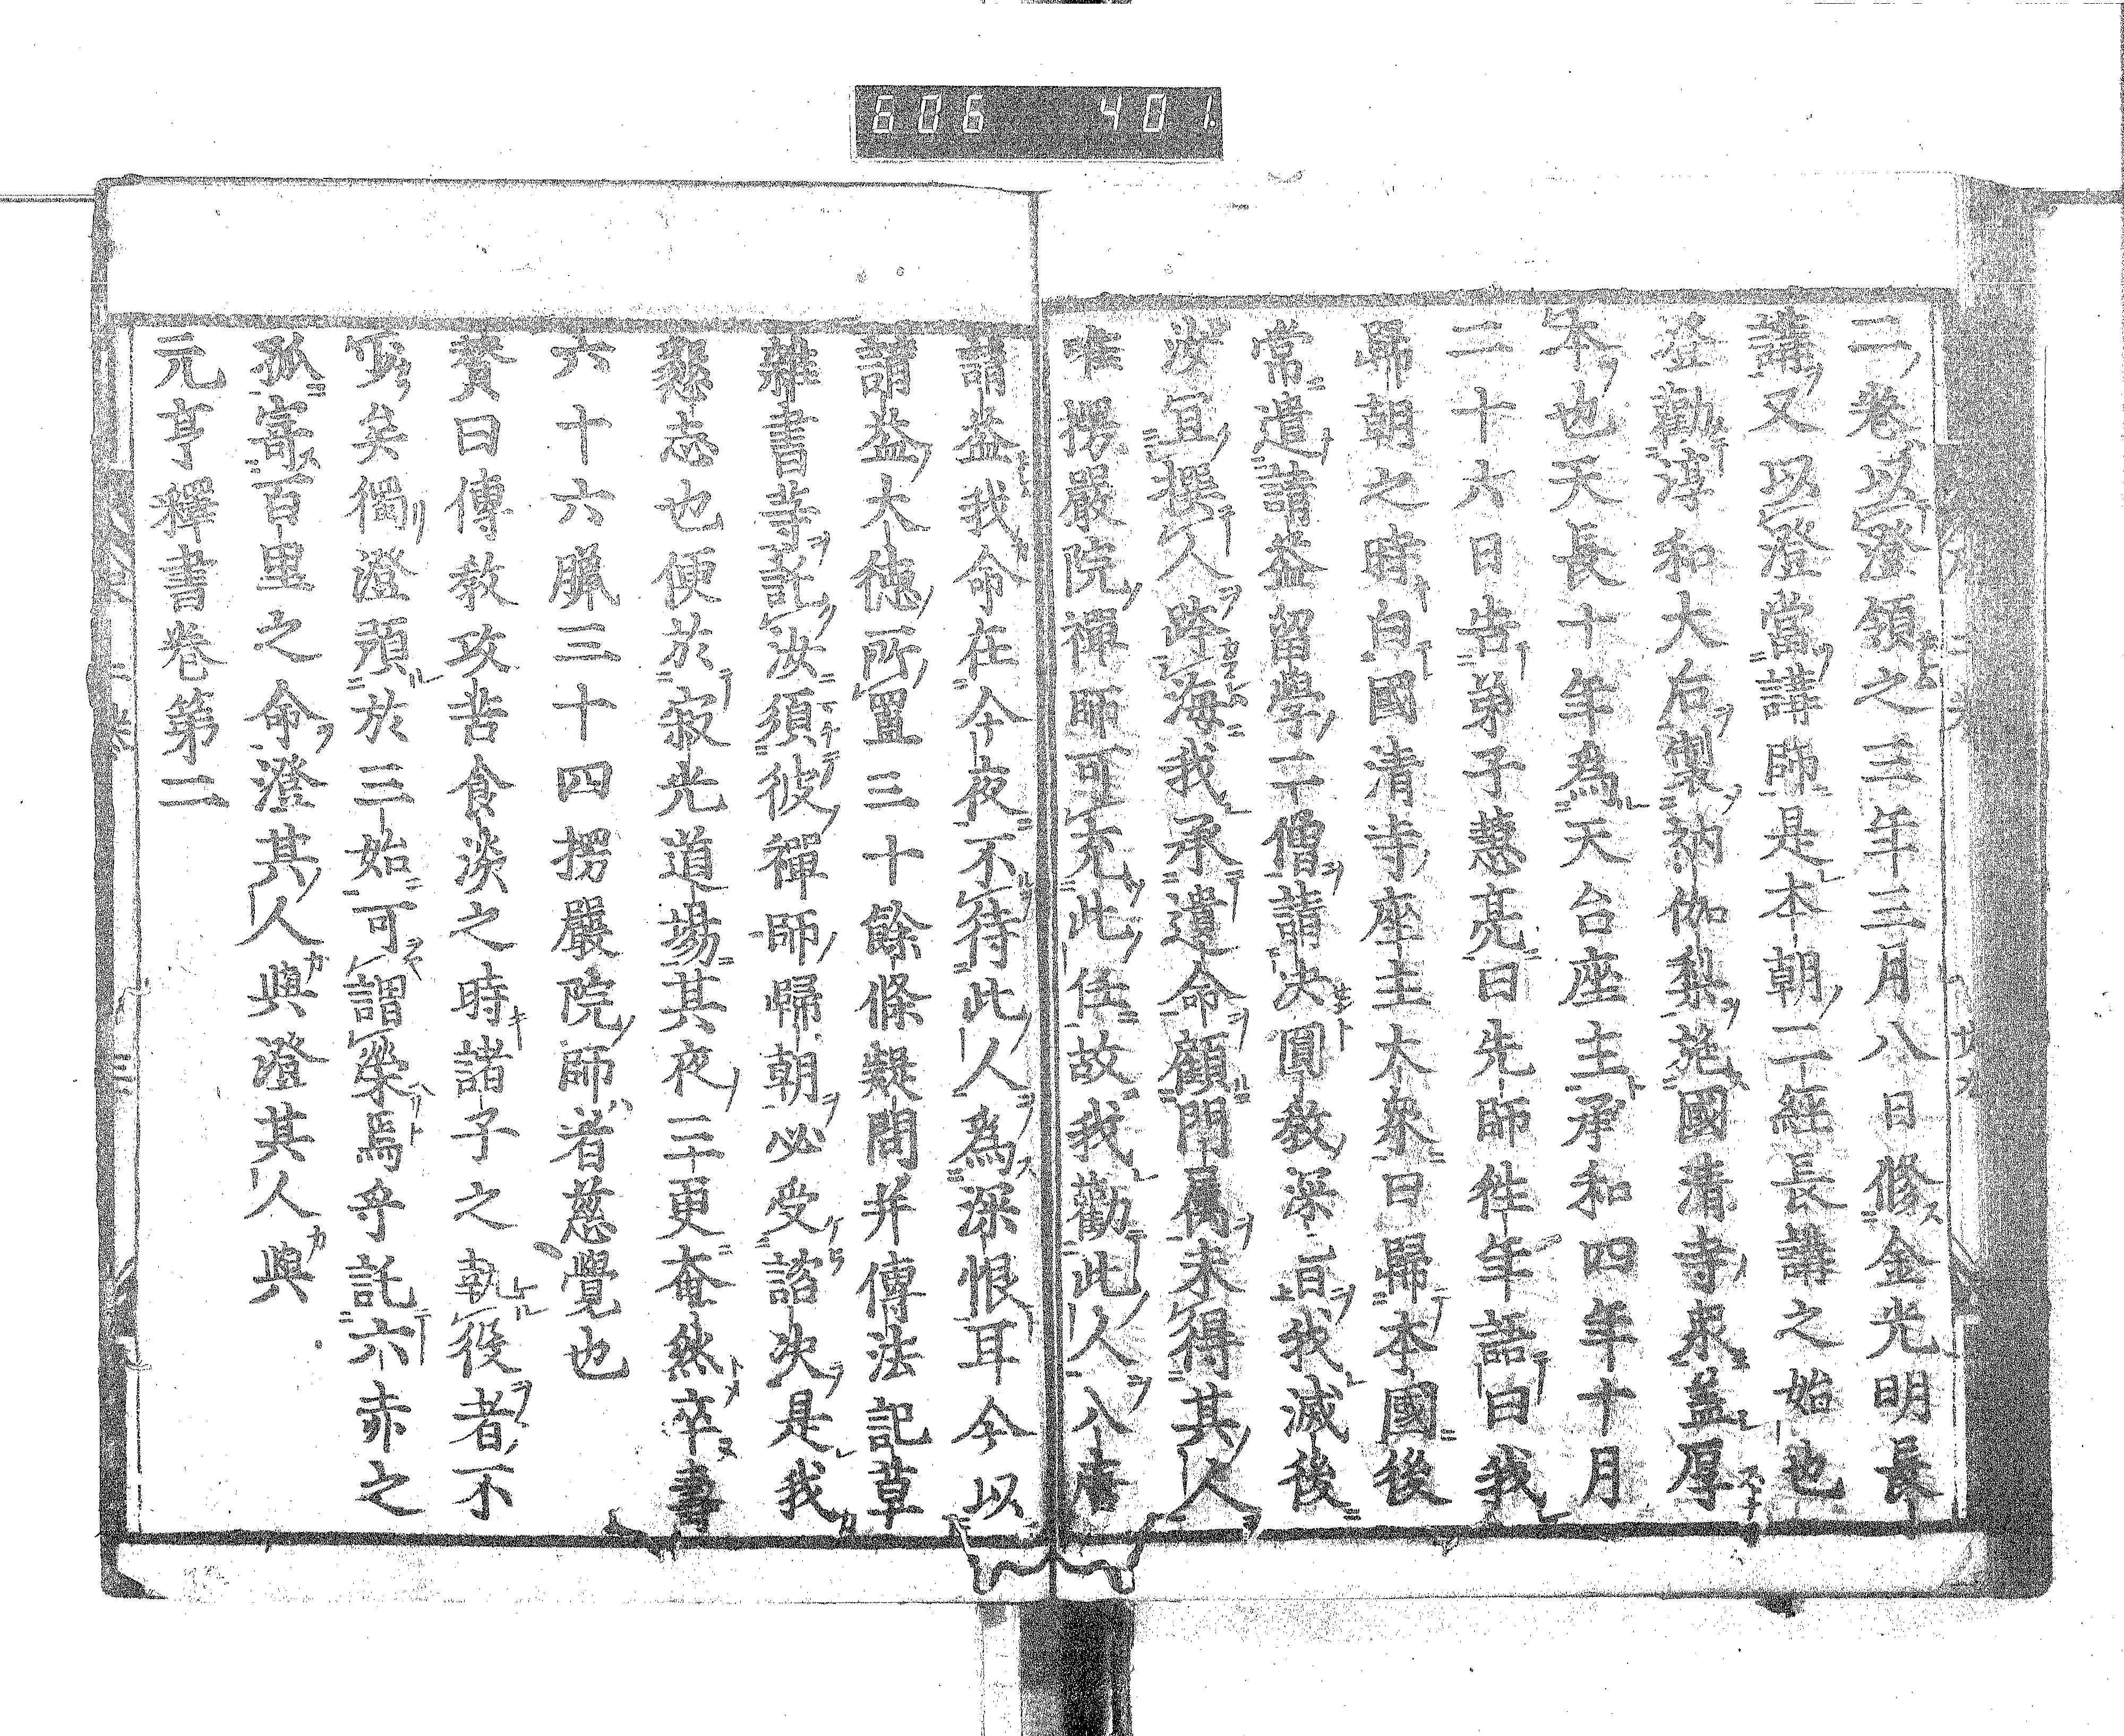 606 401
二卷以澄領之三年三月八日修金光明長
講又以澄當講師是本朝二經長講之始也
登勸淳和大后製衲伽梨施國清寺衆蓋厚
本也天長十年爲天台座主承和四年十月
二十六日告弟子慧亮曰先師徃年語曰我
歸朝之時白國清寺座主大衆曰歸本國後
常遣請益留學二僧請决圓教深旨我滅後
汝宜撰人跨海我承遺命顧門属未得其人
唯楞嚴院禪師可充此任故我勸此人入唐
請益我命在今夜不待此人爲深恨耳今以
請益大德所置三十餘條疑問并傳法記草
雜書等託汝須彼禪師歸朝必受諮决是我
懇志也便於寂光道場其夜三更奄然卒書
六十六臘三十四楞嚴院師者慈覺也
賛曰傳教攻苦食淡之時諸子之執役者不
少矣獨澄預於三始可謂榮焉乎託六赤之
孤寄百里之命澄其人與澄其人與
元亨釋書卷第二